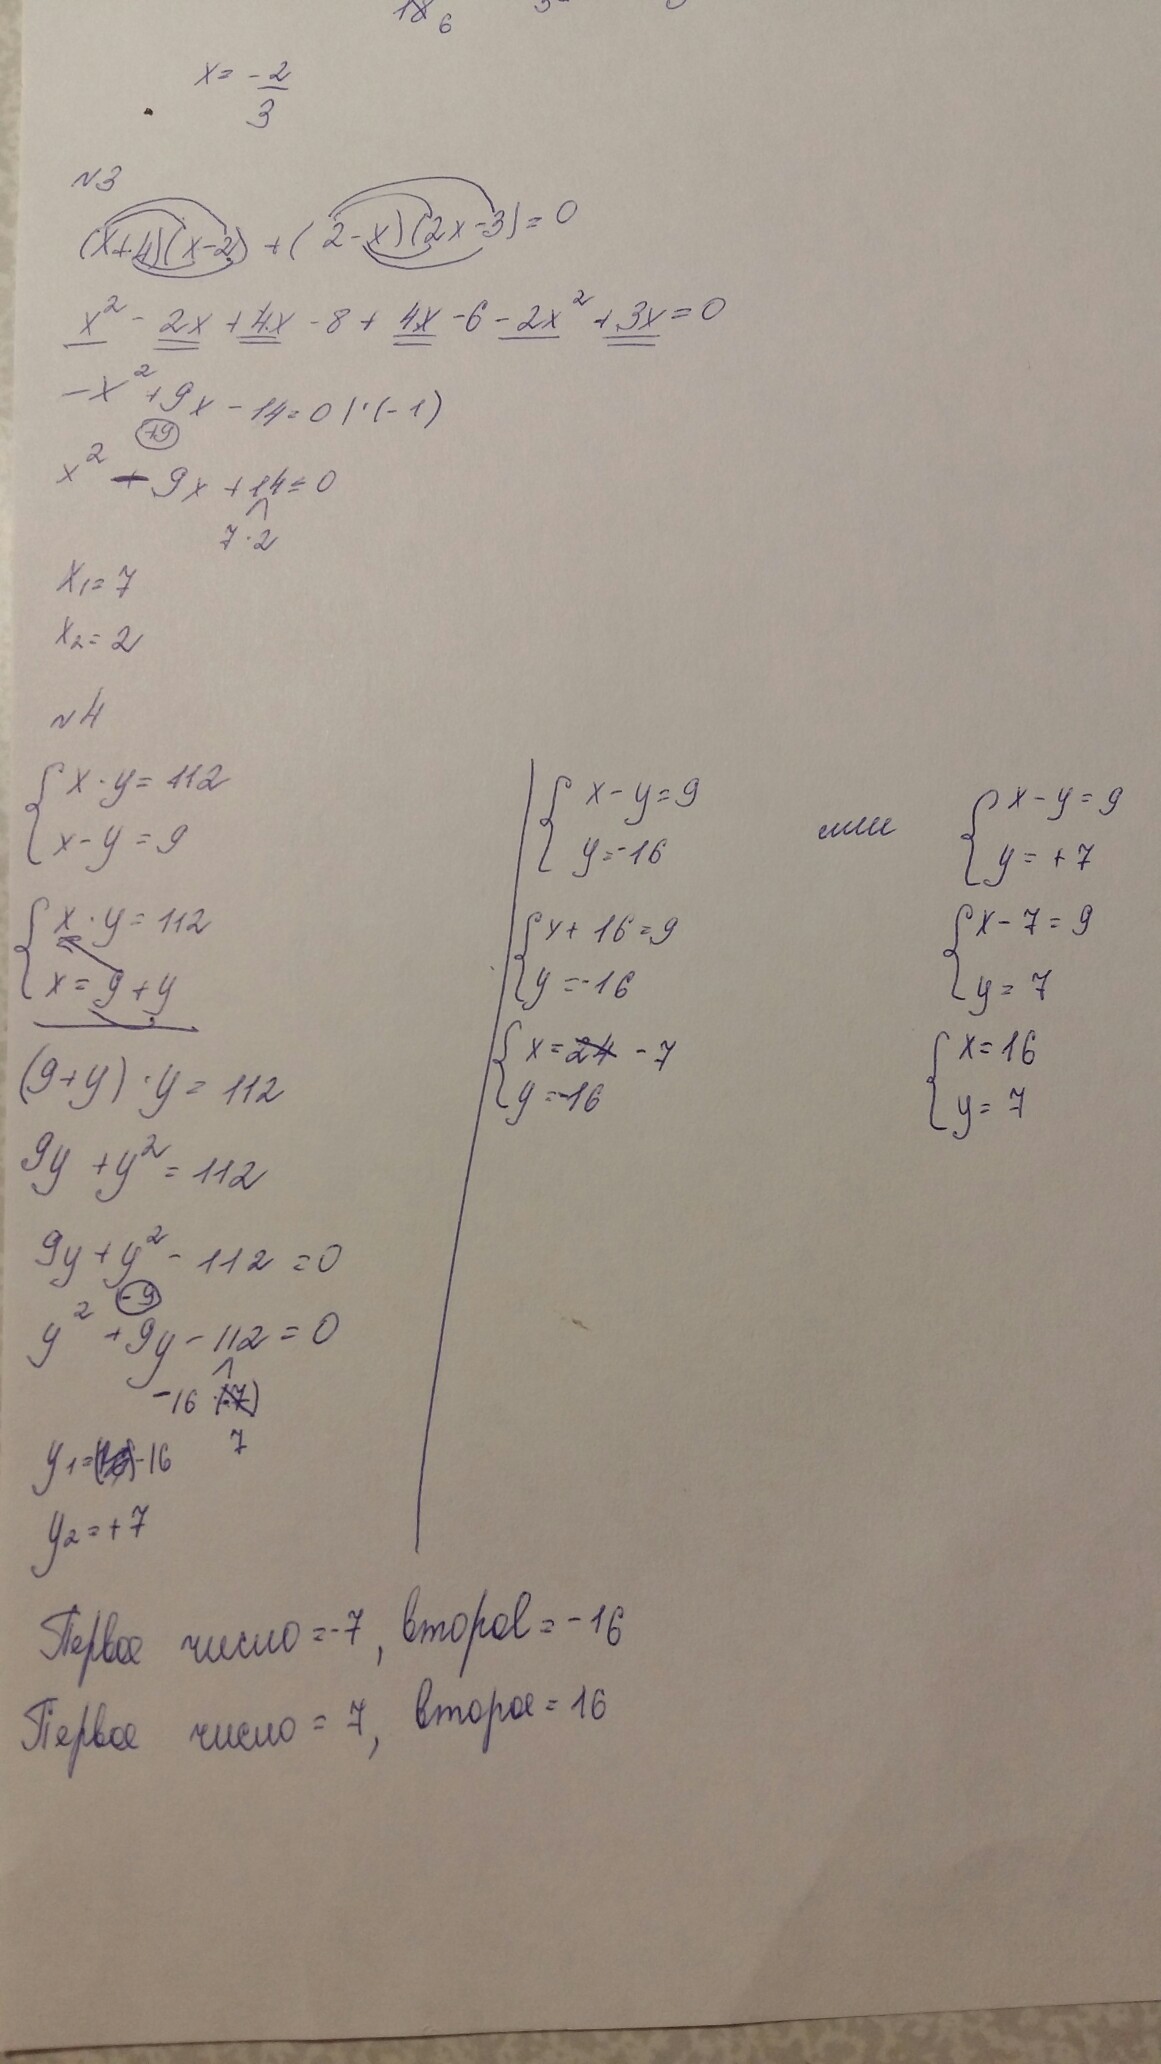 x = -2/3
№3
(x+4)(x-2) + (2-x)(2x-3) = 0
x² - 2x + 4x - 8 + 4x - 6 - 2x² + 3x = 0
-x² + 9x - 14 = 0 | · (-1)
+9
x² - 9x + 14 = 0
7 · 2
x₁ = 7
x₂ = 2
№4
{ x · y = 112
x - y = 9
{ x · y = 112
x = 9 + y
(9+y) · y = 112
9y + y² = 112
9y + y² - 112 = 0
-9
y² + 9y - 112 = 0
-16 ·
7
y₁ = -16
y₂ = +7
{ x - y = 9
y = -16
{ x + 16 = 9
y = -16
{ x = 24 -7
y = -16
или
{ x - y = 9
y = +7
{ x - 7 = 9
y = 7
{ x = 16
y = 7
Первое число = -7, второе = -16
Первое число = 7, второе = 16